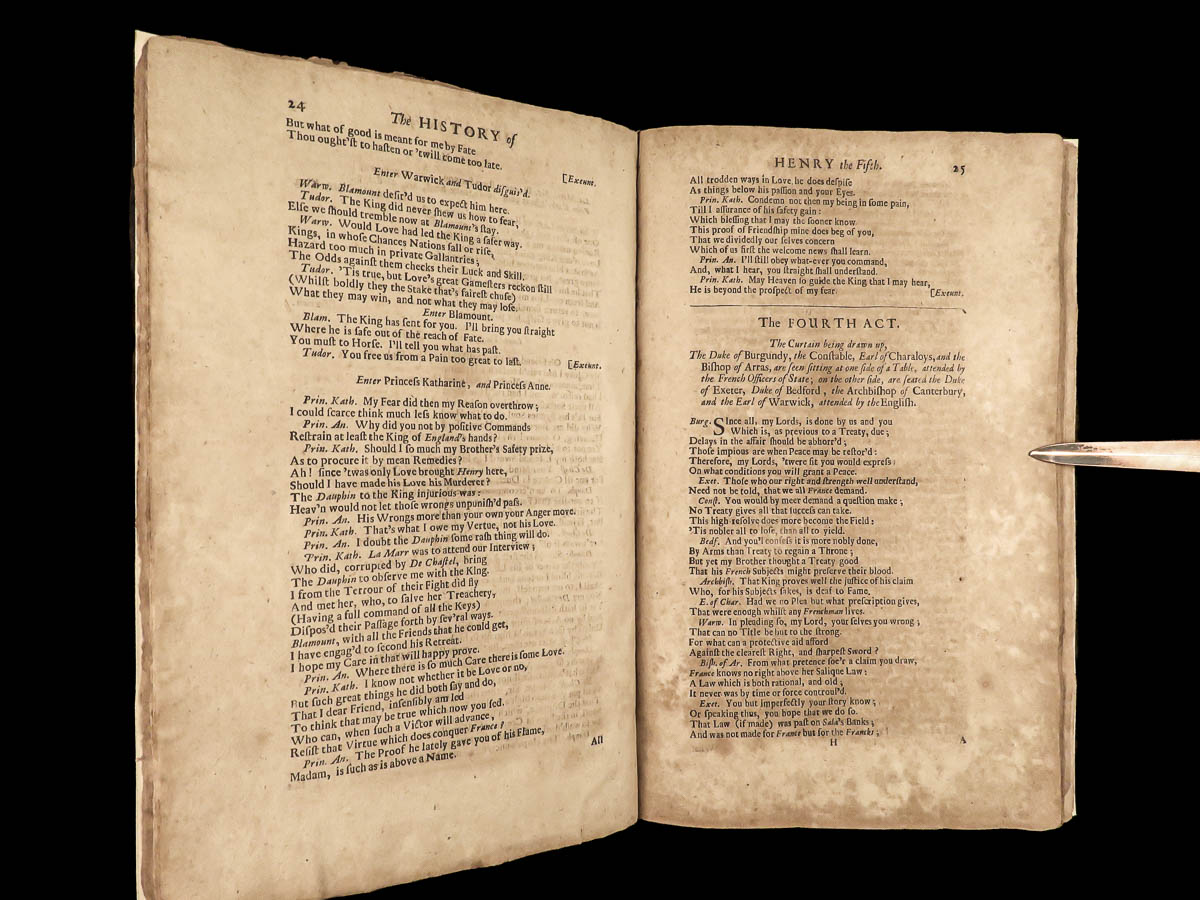 24
The HISTORY of
But what of good is meant for me by Fate
Thou ought'ſt to haſten or 'twill come too late.
[Exeunt.
Enter Warwick and Tudor diſguis'd.
Warw. Blamount deſir'd us to expect him here.
Tudor. The King did never ſhew us how to fear;
Elſe we ſhould tremble now at Blamount's ſtay.
Warw. Would Love had led the King a ſafer way.
Kings, in whoſe Chances Nations fall or riſe,
Hazard too much in private Gallantries;
The Odds againſt them checks their Luck and Skill.
Tudor. 'Tis true, but Love's great Gameſters reckon ſtill
(Whilſt boldly they the Stake that's faireſt chuſe)
What they may win, and not what they may loſe.
Enter Blamount.
Blam. The King has ſent for you. I'll bring you ſtraight
Where he is ſafe out of the reach of Fate.
You muſt to Horſe. I'll tell you what has paſt.
Tudor. You free us from a Pain too great to laſt.
[Exeunt.
Enter Princeſs Katharine, and Princeſs Anne.
Prin. Kath. My Fear did then my Reaſon overthrow;
I could ſcarce think much leſs know what to do.
Prin. An. Why did you not by poſitive Commands
Reſtrain at leaſt the King of England's hands?
Prin. Kath. Should I ſo much my Brother's Safety prize,
As to procure it by mean Remedies?
Ah! ſince 'twas only Love brought Henry here,
Should I have made his Love his Murderer?
The Dauphin to the King injurious was:
Heav'n would not let thoſe wrongs unpuniſh'd paſs.
Prin. An. His Wrongs more than your own your Anger move.
Prin. Kath. That's what I owe my Vertue, not his Love.
Prin. An. I doubt the Dauphin ſome raſh thing will do.
Prin. Kath. La Marr was to attend our Interview;
Who did, corrupted by De Chaſtel, bring
The Dauphin to obſerve me with the King.
I from the Terrour of their Fight did fly
And met her, who, to ſalve her Treachery,
(Having a full command of all the Keys)
Diſpos'd their Paſſage forth by ſev'ral ways.
Blamount, with all the Friends that he could get,
I have engag'd to ſecond his Retreat.
I hope my Care in that will happy prove.
Prin. An. Where there is ſo much Care there is ſome Love.
Prin. Kath. I know not whether it be Love or no,
But ſuch great things he did both ſay and do,
That I dear Friend, inſenſibly am led
To think that may be true which now you ſed.
Who can, when ſuch a Victor will advance,
Reſiſt that Virtue which does conquer France?
Prin. An. The Proof he lately gave you of his Flame,
Madam, is ſuch as is above a Name.
All
HENRY the Fifth.
25
All trodden ways in Love he does deſpiſe
As things below his paſſion and your Eyes.
Prin. Kath. Condemn not then my being in ſome pain,
Till I aſſurance of his ſafety gain:
Which bleſſing that I may the ſooner know
This proof of Friendſhip mine does beg of you,
That we dividedly our ſelves concern
Which of us firſt the welcome news ſhall learn.
Prin. An. I'll ſtill obey what-ever you command,
And, what I hear, you ſtraight ſhall underſtand.
Prin. Kath. May Heaven ſo guide the King that I may hear,
He is beyond the proſpect of my fear.
[Exeunt.
The FOURTH ACT.
The Curtain being drawn up,
The Duke of Burgundy, the Conſtable, Earl of Charaloys, and the
Biſhop of Arras, are ſeen ſitting at one ſide of a Table, attended by
the French Officers of State; on the other ſide, are ſeated the Duke
of Exeter, Duke of Bedford, the Archbiſhop of Canterbury,
and the Earl of Warwick, attended by the Engliſh.
Burg. SInce all, my Lords, is done by us and you
Which is, as previous to a Treaty, due;
Delays in the affair ſhould be abhorr'd;
Thoſe impious are when Peace may be reſtor'd:
Therefore, my Lords, 'twere fit you would expreſs
On what conditions you will grant a Peace.
Exet. Thoſe who our right and ſtrength well underſtand,
Need not be told, that we all France demand.
Conſt. You would by meer demand a queſtion make;
No Treaty gives all that ſucceſs can take.
This high reſolve does more become the Field:
'Tis nobler all to loſe, than all to yield.
Bedf. And you'l confeſs it is more nobly done,
By Arms than Treaty to regain a Throne;
But yet my Brother thought a Treaty good
That his French Subjects might preſerve their blood.
Archbiſh. That King proves well the juſtice of his claim
Who, for his Subjects ſakes, is deaf to Fame.
E. of Char. Had we no Plea but what preſcription gives,
That were enough whilſt any Frenchman lives.
Warw. In pleading ſo, my Lord, your ſelves you wrong;
That can no Title be but to the ſtrong.
For what can a protective aid afford
Againſt the cleareſt Right, and ſharpeſt Sword?
Biſh. of Ar. From what pretence ſoe'r a claim you draw,
France knows no right above her Salique Law:
A Law which is both rational, and old;
It never was by time or force controul'd.
Exet. You but imperfectly your ſtory know;
Or ſpeaking thus, you hope that we do ſo.
That Law (if made) was paſt on Sala's Banks;
And was not made for France but for the Francks;
H
A